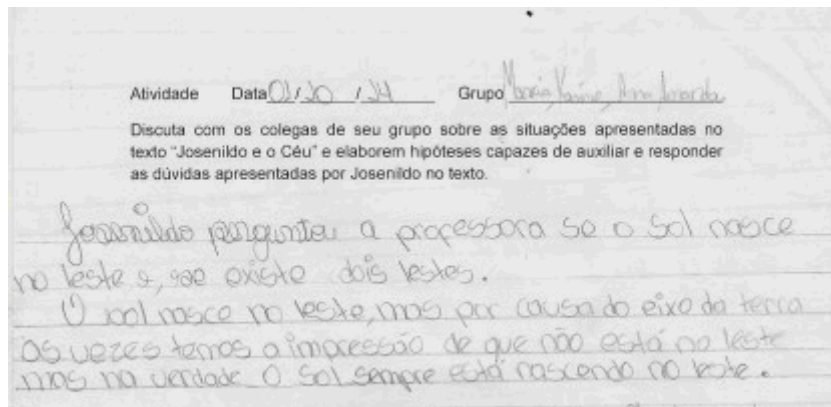 Atividade Data 01/10 / 14 Grupo Maria, Karine, Ana, Amanda
Discuta com os colegas de seu grupo sobre as situações apresentadas no
texto "Josenildo e o Céu" e elaborem hipóteses capazes de auxiliar e responder
as dúvidas apresentadas por Josenildo no texto.
Josenildo perguntou a professora se o Sol nasce
no leste e, se existe dois lestes.
O sol nasce no leste, mas por causa do eixo da terra
as vezes temos a impressão de que não está no leste
mas na verdade o Sol sempre está nascendo no leste.